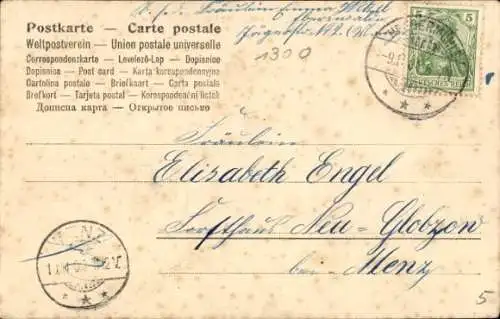 Postkarte — Carte postale
Weltpostverein — Union postale universelle
Correspondenzkarte — Levelező-Lap — Dopisnice
Dopisnica — Post card — Karta korespondencyjna
Cartolina postale — Briefkaart — Carta postala
Brefkort — Tarjeta postal — Korespondenční lístek
Дописна карта — Открытое письмо
Fräulein
1300
5
DEUTSCHES REICH
Fräulein
Elisabeth Engel
Forsthaus Neu-Globzow
bei Menz
MENZ
5